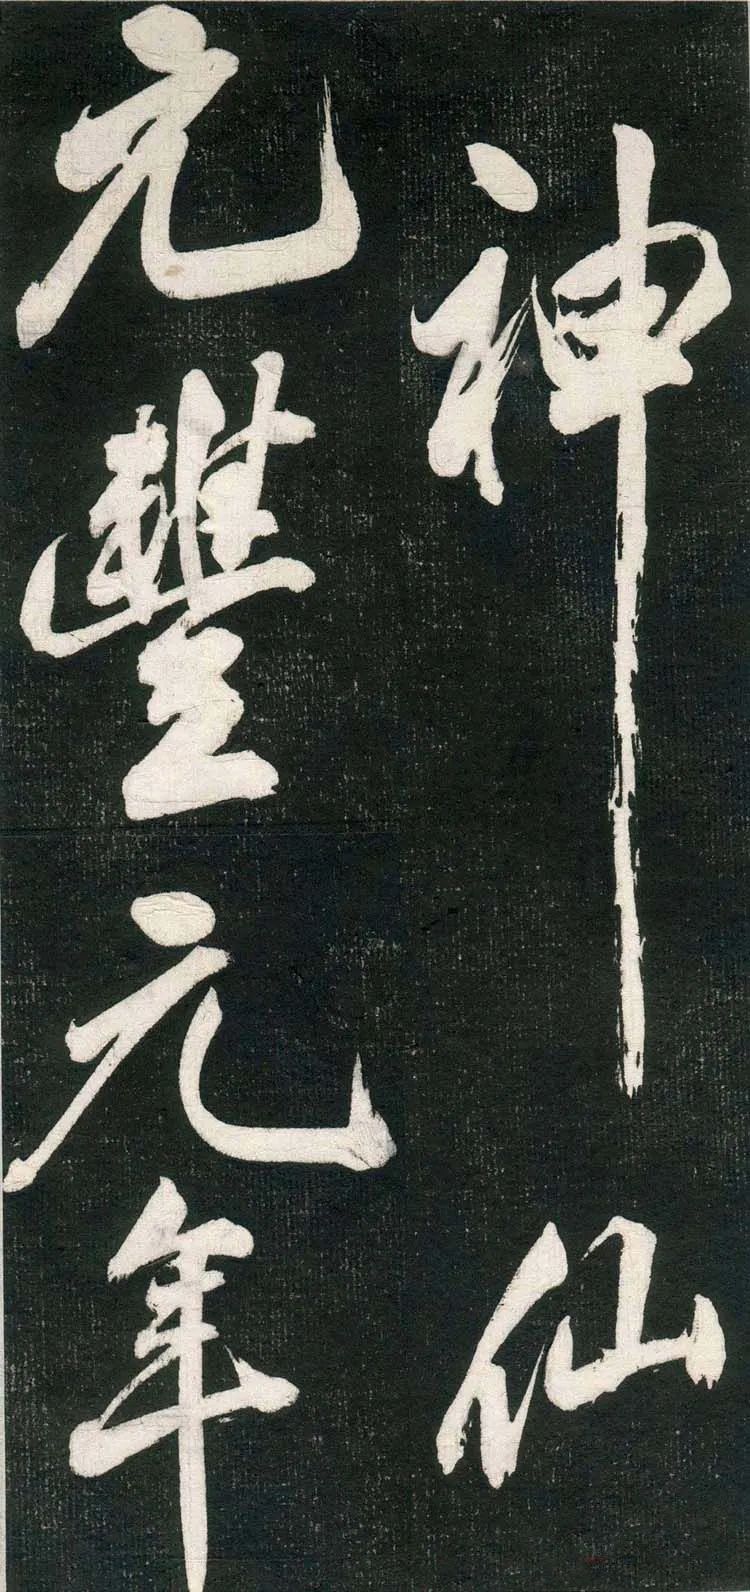 神仙
元豐元年